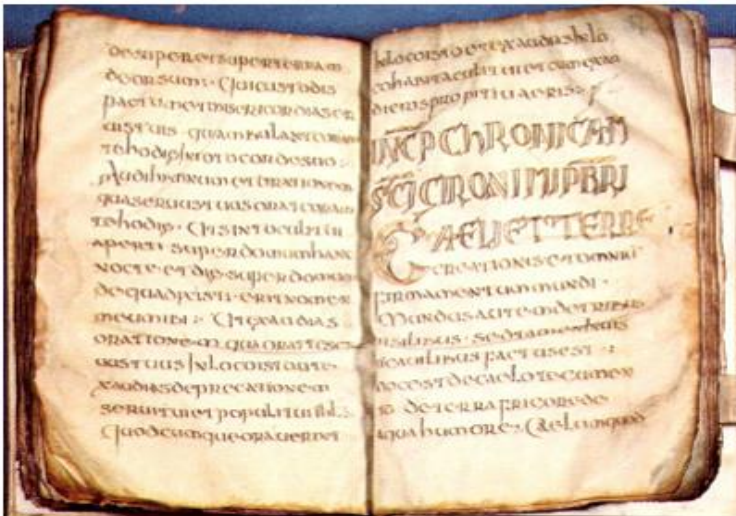 desuper et super terram
deorsum · Qui custodis
pactum et misericordias
uis tuis qui ambulant coram
te hodie in toto corde suo ·
Audi hymnum et orationem
qua seruus tuus orat coram
te hodie · Ut sint oculi tui
aperti super domum hanc
nocte et die · super domum
de qua erit nomen
meum ibi · Ut exaudias
orationem qua orat te ser
uus tuus In loco isto ut e
xaudias deprecationem
serui tui et populi tui
Quodcumque orauerint
In loco isto et exaudies In lo
co habitaculi tui et cum exau
dieris propitius eris
INCP CHRONICAM
SCI CIRONIMI PBRI
CAELI ET TERRE
creationis et omni
firmamentum mundi ·
Mundus autem de tribus
sed tamen
factus est ·
hoc est de caelo
de terra de
aqua humore · Caelum quod